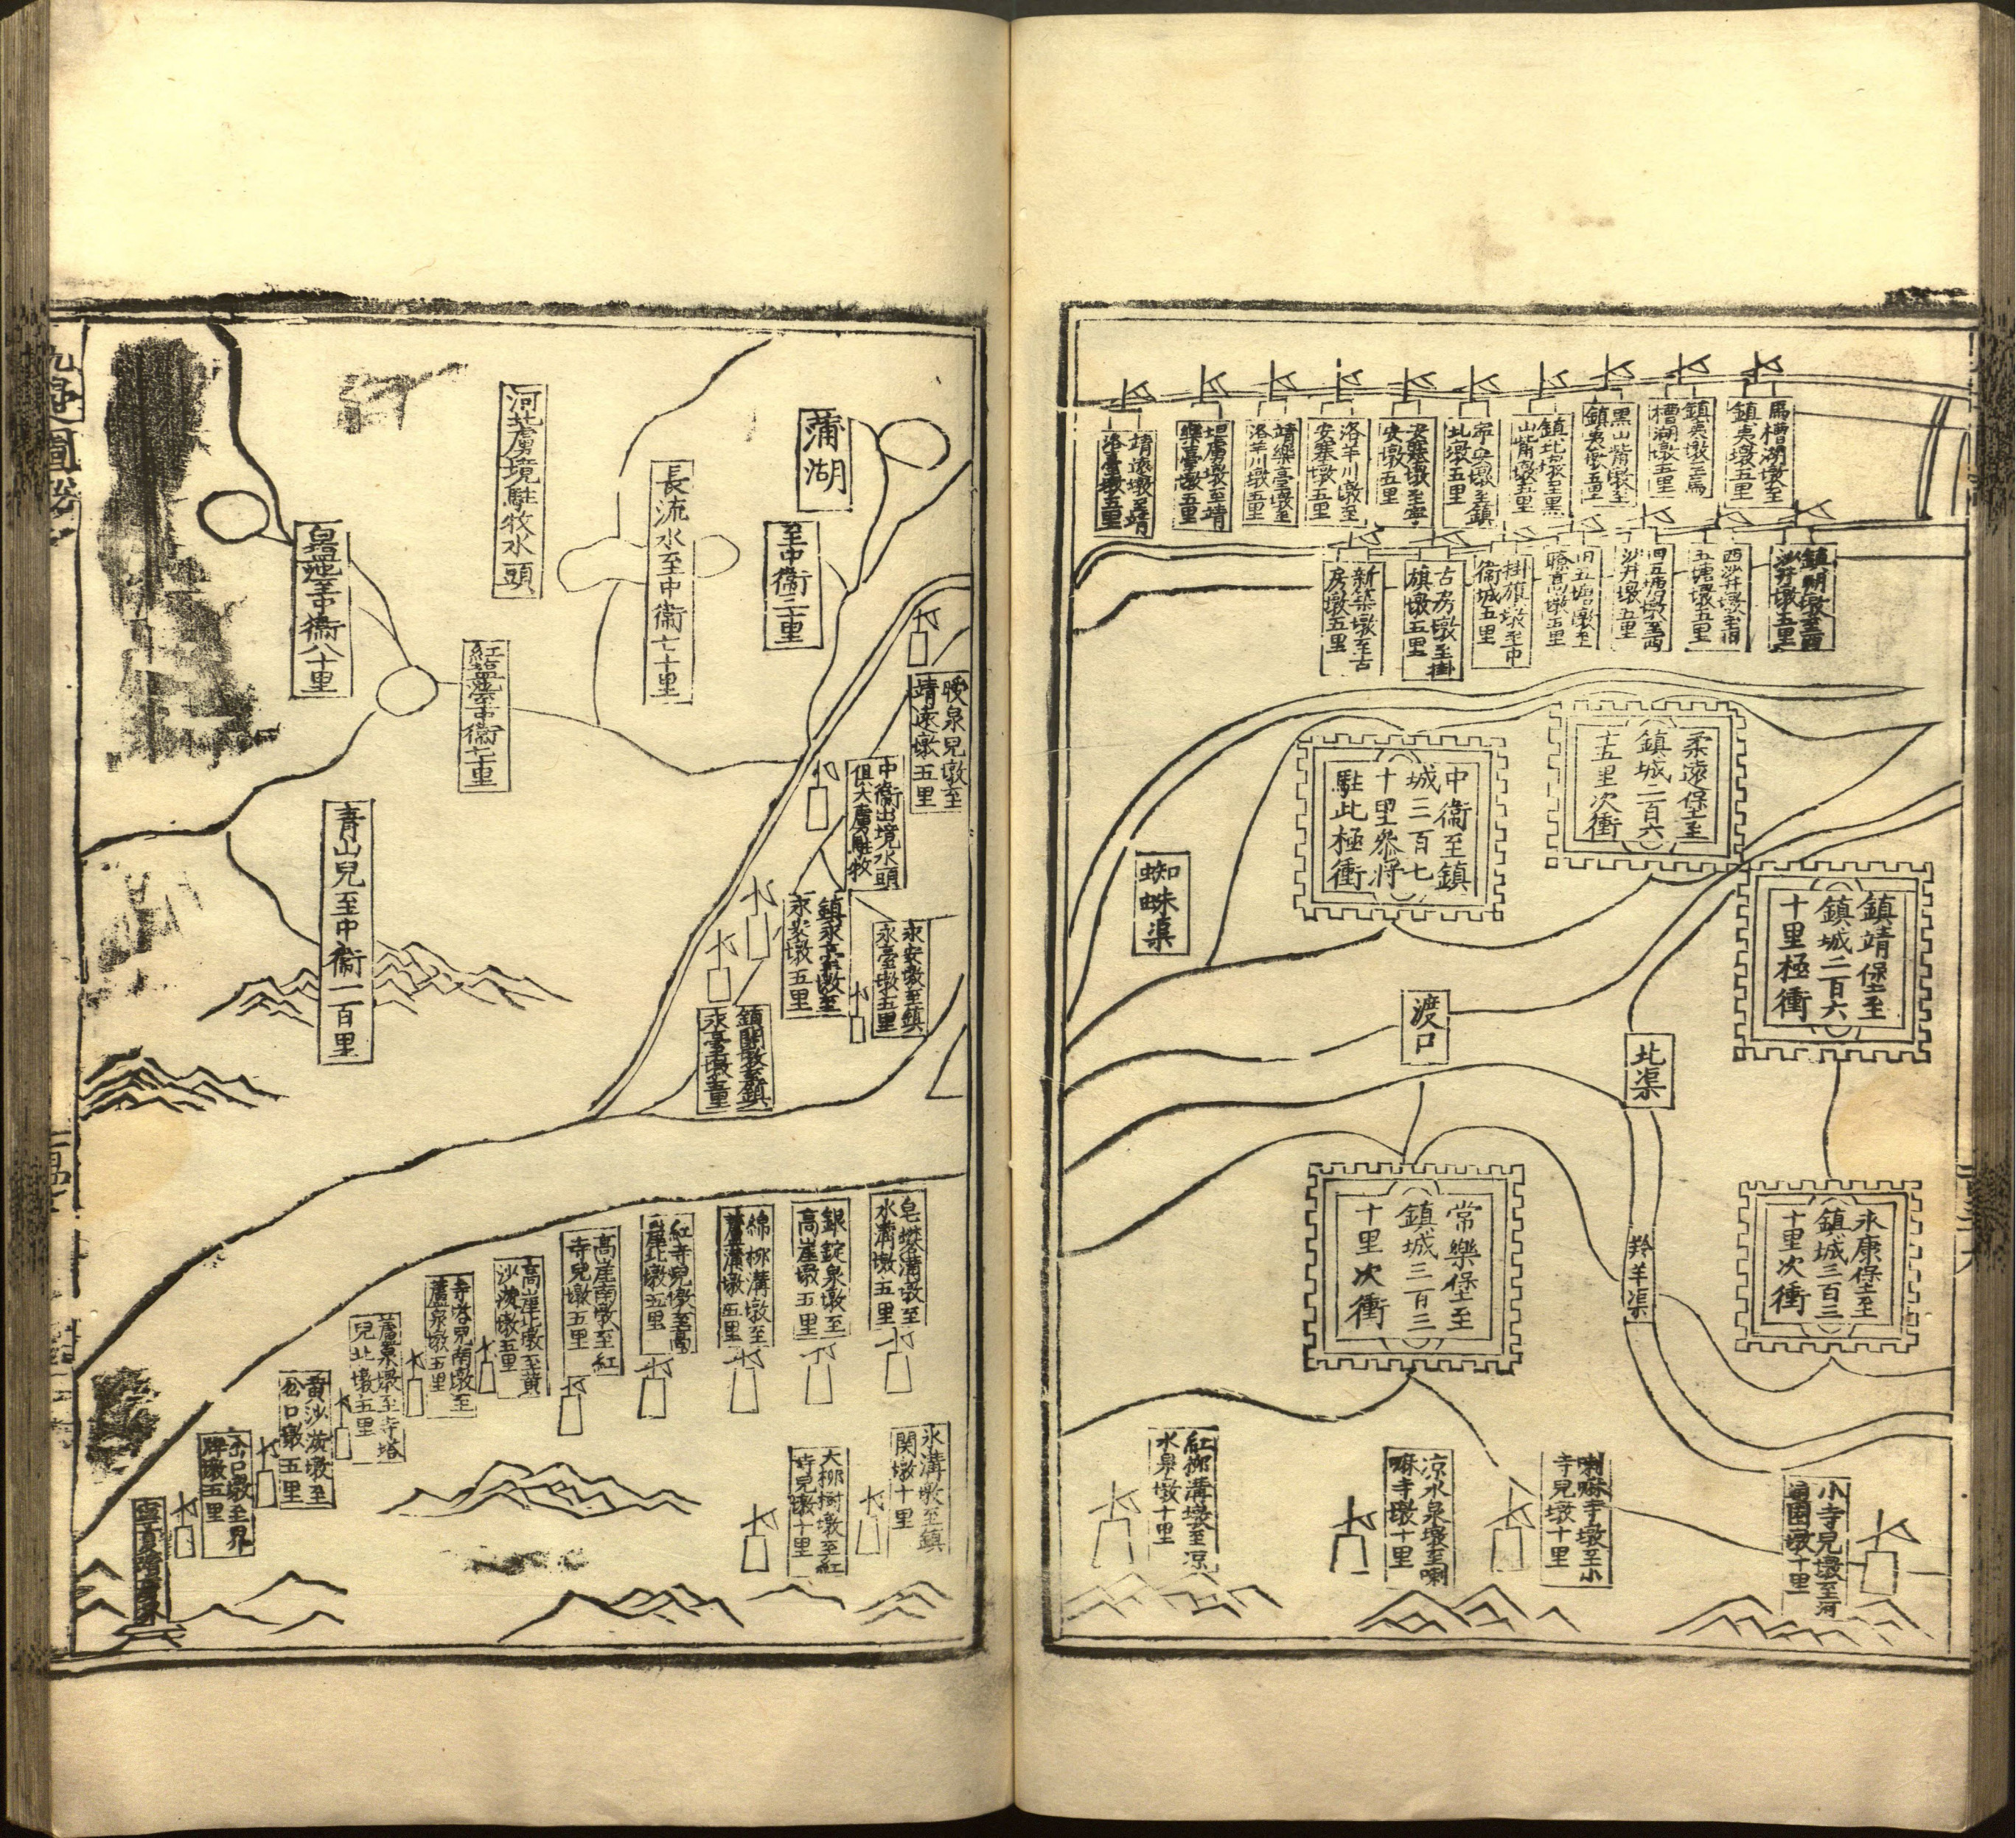 馬槽湖墩至
鎮夷墩五里
鎮夷墩至馬
槽湖墩五里
黑山嘴墩至
鎮夷墩五里
鎮北墩至黑
山嘴墩五里
寧安墩至鎮
北墩五里
安塞墩至寧
安墩五里
洛羊川墩至
安塞墩五里
靖樂臺墩至
洛羊川墩五里
墩至靖
樂臺墩五里
靖遠墩至靖
鎮朔墩至西
沙井墩五里
西沙井墩至旧
五塘墩五里
旧五塘墩至西
沙井墩五里
旧五塘墩至
墩五里
掛旗墩至中
衞城五里
古房墩至掛
旗墩五里
新築墩至古
房墩五里
柔遠堡至
鎮城二百六
十五里次衝
中衞至鎮
城三百七
十里叅將
駐此極衝
鎮靖堡至
鎮城二百六
十里極衝
蜘蛛渠
渡口
北渠
羚羊渠
永康堡至
鎮城三百三
十里次衝
常樂堡至
鎮城三百三
十里次衝
小寺兒墩至河
墩十里
喇嘛寺墩至小
寺兒墩十里
凉水泉墩至喇
嘛寺墩十里
紅柳溝墩至凉
水泉墩十里
蒲湖
至中衞二十里
長流水至中衞七十里
河北虜境駐牧水頭
紅鹽池至中衞七十里
至中衞八十里
青山兒至中衞一百里
暖泉兒墩至
靖遠墩五里
中衞出境水頭
俱大虜駐牧
永安墩至鎮
永臺墩五里
鎮永臺墩至
永安墩五里
鎮關墩至鎮
永臺墩五里
皂礬溝墩至
水溝墩五里
銀錠泉墩至
高崖墩五里
綿柳溝墩至
蘆溝墩五里
紅寺兒墩至高
崖北墩五里
高崖南墩至紅
寺兒墩五里
高崖北墩至黄
沙墩五里
寺塔兒南墩至
蘆泉墩五里
蘆泉墩至寺塔
兒北墩五里
黄沙墩至
岔口墩五里
岔口墩至界
牌墩五里
水溝墩至鎮
関墩十里
大柳樹墩至紅
寺兒墩十里